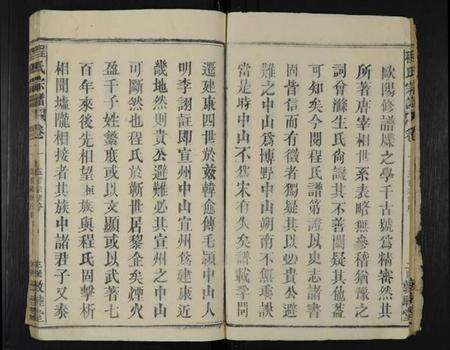 歐陽修譜牒之學千古號為精審然其
所著唐宰相世系表略無參稽猶豫之
詞曾滌生氏尙譏其不善闕疑其他蓋
可知矣今閱程氏譜第證以史志諸書
固皆信而有徵者獨疑其以必貴公避
難之中山為博野中山朔南不無乘誤
當是時中山不隸宋有失矣譜載孚問
遷建康四世於茲韓愈傳毛穎中山人
明李詡註即宣州中山宣州為建康近
畿地然則貴公避難必其宣州之中山
可斷然也程氏於蘄世居黎企矣煙火
盈千子姓繁庶或以文顯或以武著七
百年來後先相望 族與程氏固擊析
相聞墟隴相接者其族中諸君子又泰
程氏宗譜 卷